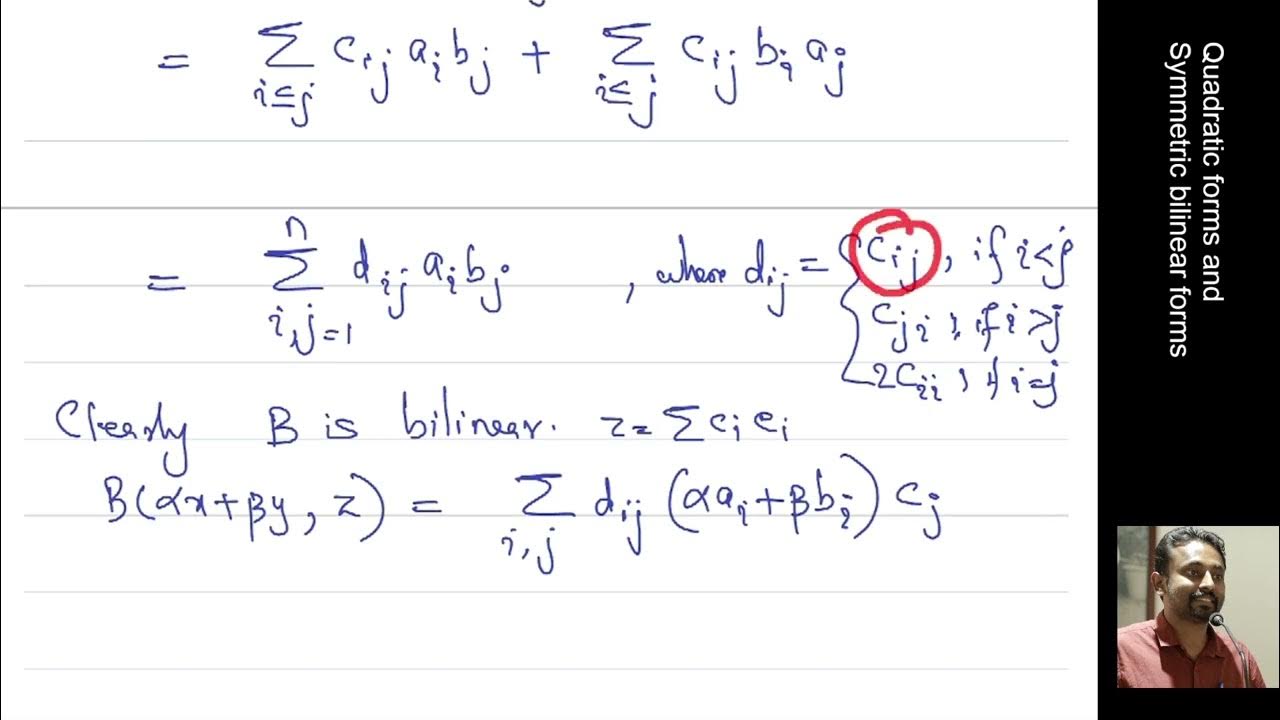 = ∑ c_{ij} a_i b_j + ∑ c_{ij} b_i a_j
i≤j i≤j
n
= ∑ d_{ij} a_i b_j , where d_{ij} = { c_{ij}, if i<j
i,j=1 c_{ji}, if i>j
2c_{ii}, if i=j
Clearly B is bilinear. z= ∑ c_i e_i
B(αx+βy, z) = ∑ d_{ij} (αa_i+βb_i) c_j
i,j
Quadratic forms and
Symmetric bilinear forms